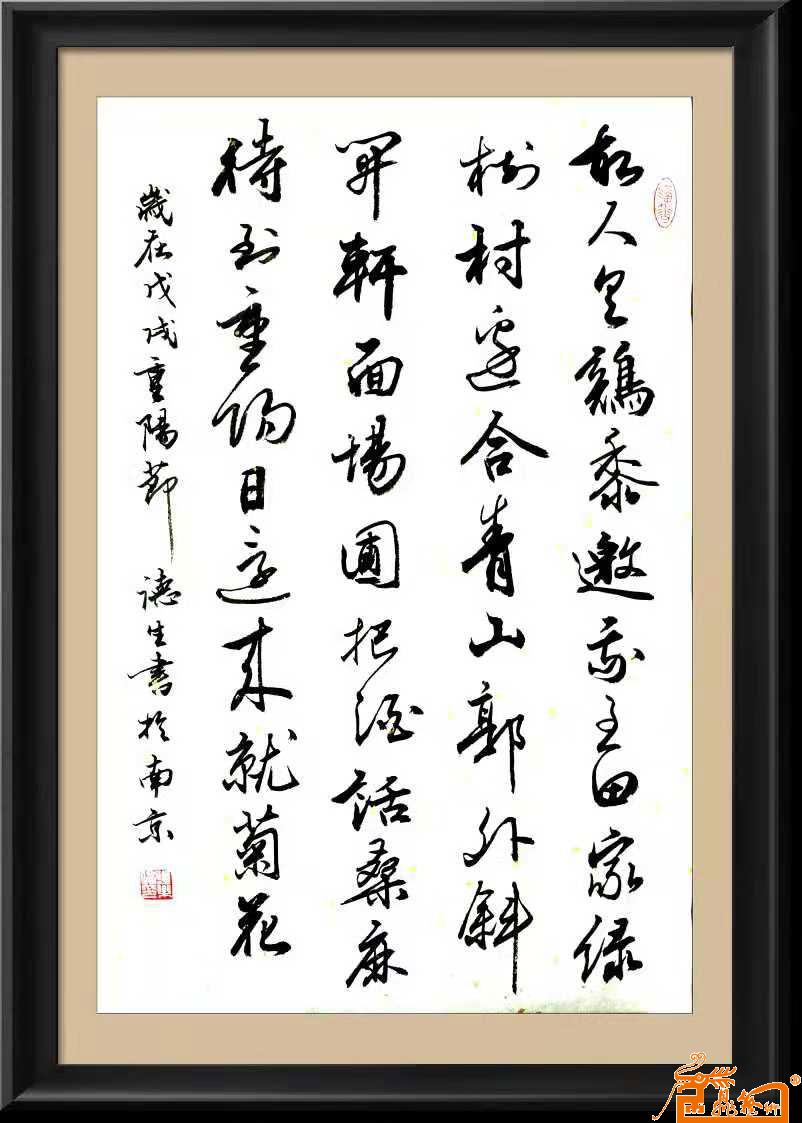 故人具鷄黍邀我至田家緑
樹村邊合青山郭外斜
開軒面場圃把酒話桑麻
待到重陽日還來就菊花
歲在戊戌重陽節 德生書於南京